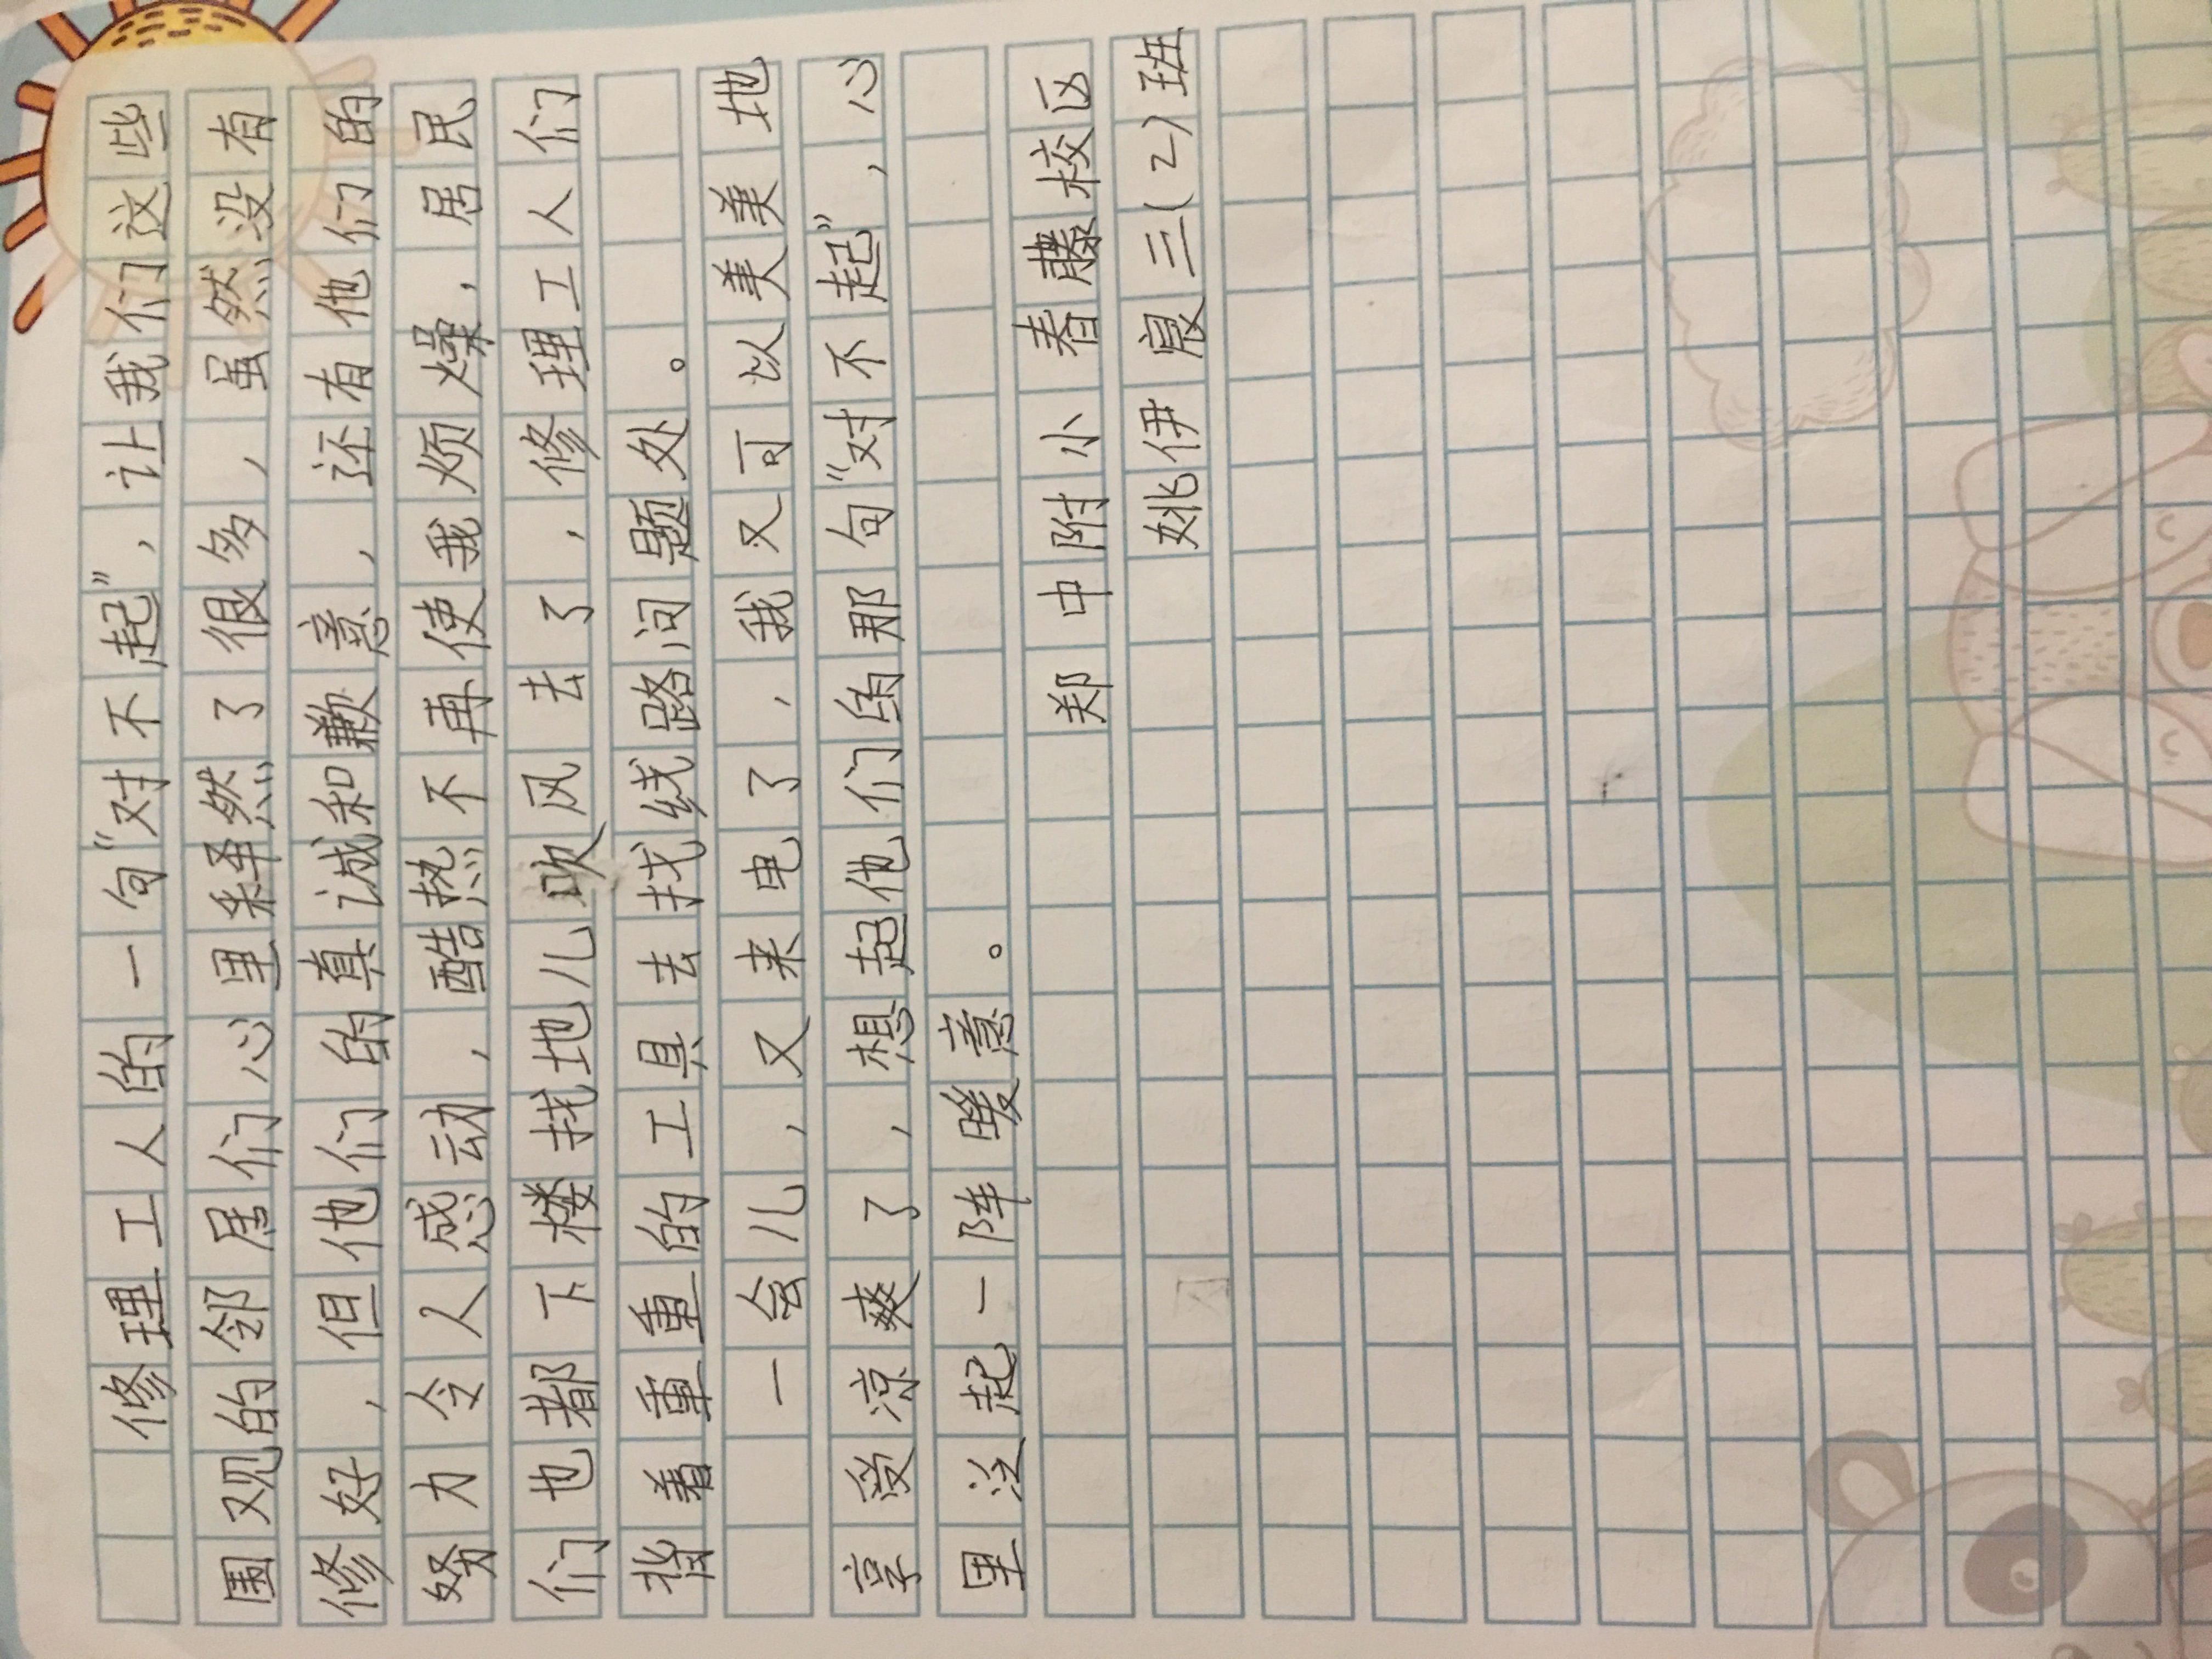 修理工人的一句“对不起”，让我们这些
围观的邻居们心里释然了很多，虽然没有
修好，但他们的真诚和歉意，还有他们的
努力令人感动，酷热不再使我烦燥，居民
们也都下楼找地儿吹风去了，修理工人们
背着重重的工具去找线路问题处。
一会儿，又来电了，我又可以美美地
享受凉爽了，想起他们的那句“对不起”，心
里泛起一阵暖意。
郑中附小春藤校区
姚伊宸三(2)班